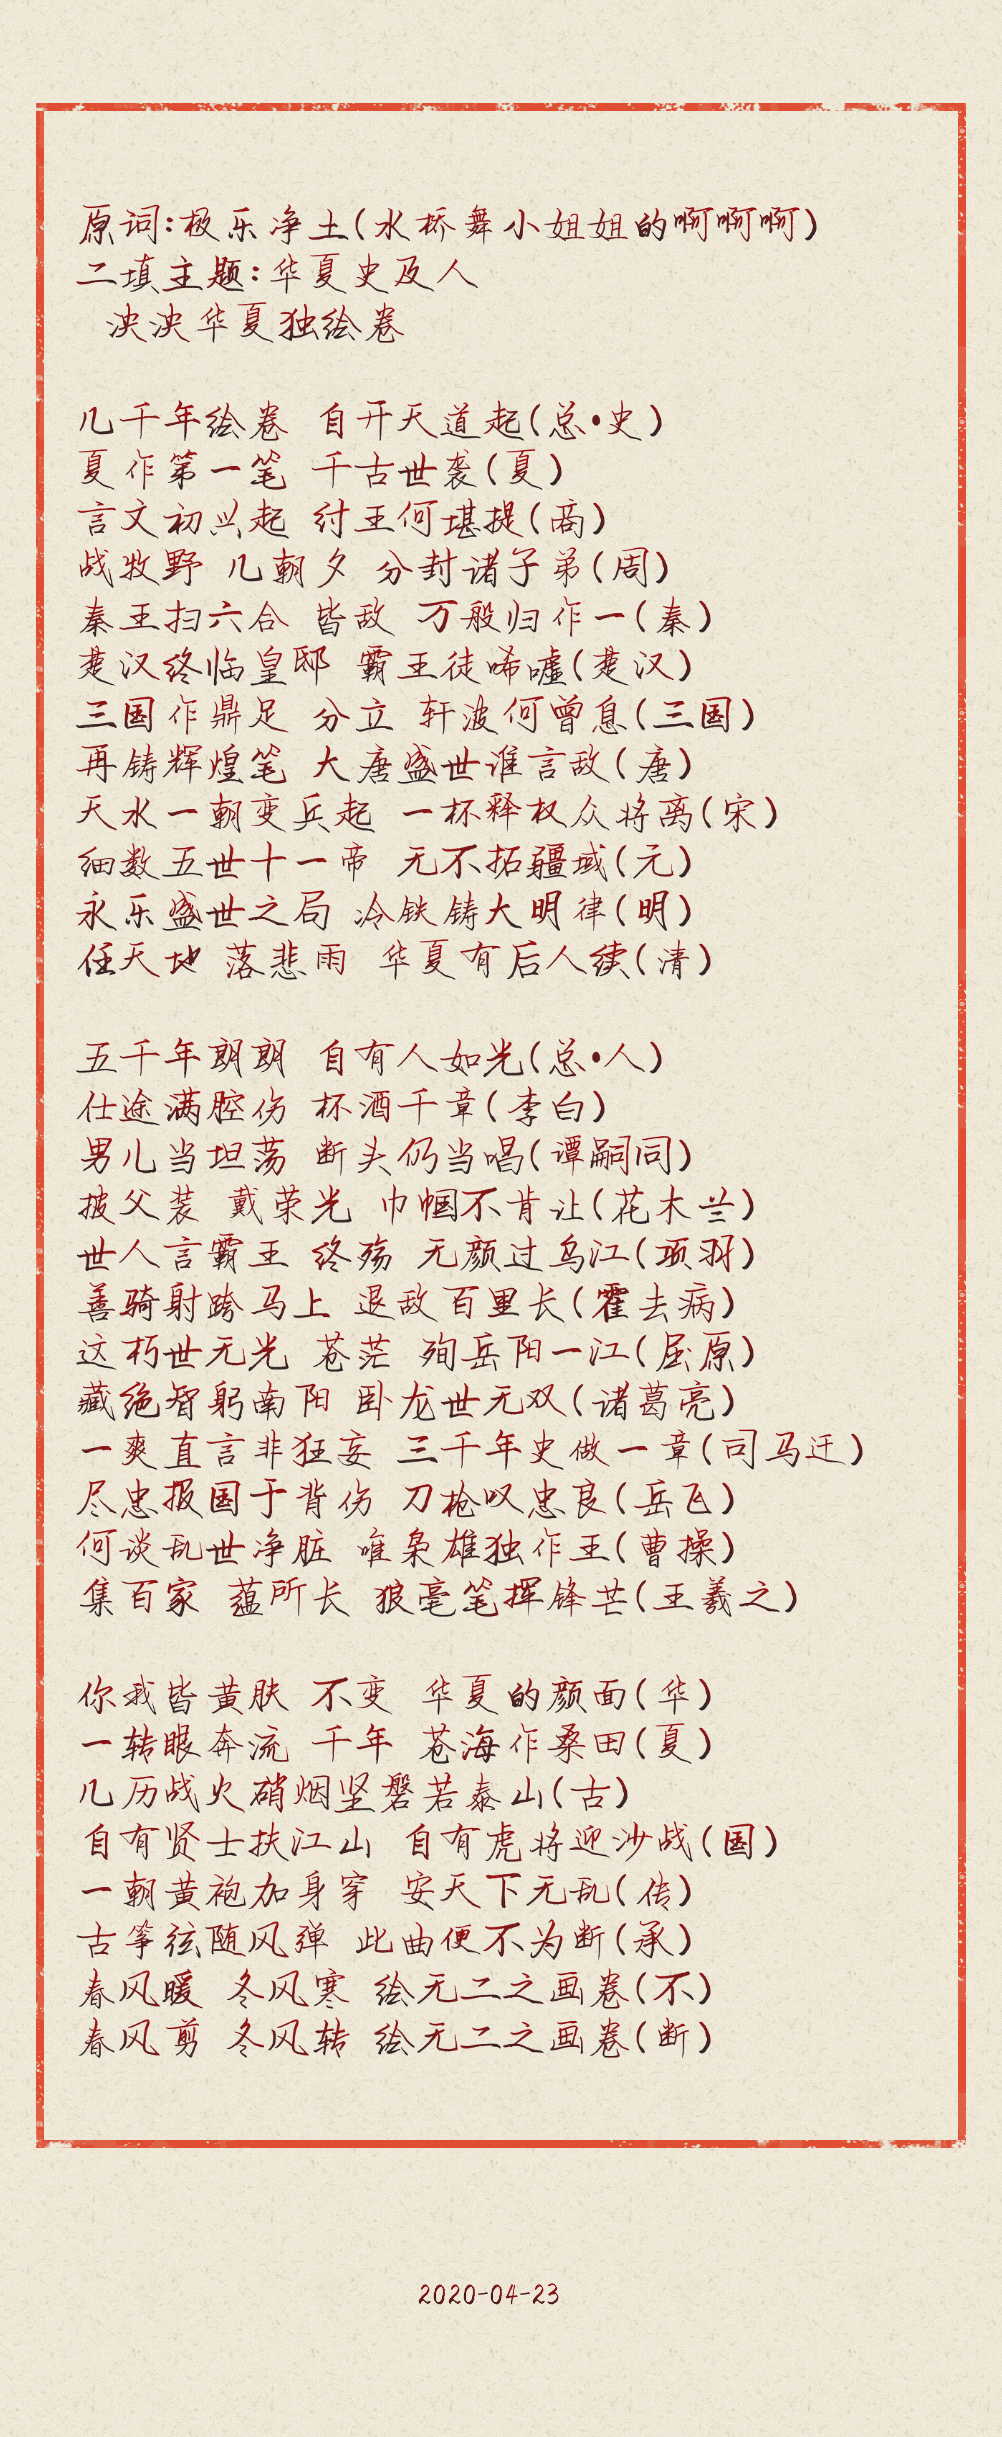 原词:极乐净土(水桥舞小姐姐的啊啊啊)
二填主题:华夏史及人
泱泱华夏独绘卷
几千年绘卷 自开天道起(总•史)
夏作第一笔 千古世袭(夏)
言文初兴起 纣王何堪提(商)
战牧野 几朝夕 分封诸子弟(周)
秦王扫六合 皆敌 万般归作一(秦)
楚汉终临皇邸 霸王徒唏嘘(楚汉)
三国作鼎足 分立 轩波何曾息(三国)
再铸辉煌笔 大唐盛世谁言敌(唐)
天水一朝变兵起 一杯释权众将离(宋)
细数五世十一帝 无不拓疆域(元)
永乐盛世之局 冷铁铸大明律(明)
任天地 落悲雨 华夏有后人续(清)
五千年朗朗 自有人如光(总•人)
仕途满腔伤 杯酒千章(李白)
男儿当坦荡 断头仍当唱(谭嗣同)
披父装 戴荣光 巾帼不肯让(花木兰)
世人言霸王 终殇 无颜过乌江(项羽)
善骑射跨马上 退敌百里长(霍去病)
这朽世无光 苍茫 殉岳阳一江(屈原)
藏绝智躬南阳 卧龙世无双(诸葛亮)
一爽直言非狂妄 三千年史做一章(司马迁)
尽忠报国于背伤 刀枪叹忠良(岳飞)
何谈乱世净脏 唯枭雄独作王(曹操)
集百家 蕴所长 狼毫笔挥锋芒(王羲之)
你我皆黄肤 不变 华夏的颜面(华)
一转眼奔流 千年 苍海作桑田(夏)
几历战火硝烟坚磐若泰山(古)
自有贤士扶江山 自有虎将迎沙战(国)
一朝黄袍加身穿 安天下无乱(传)
古筝弦随风弹 此曲便不为断(承)
春风暖 冬风寒 绘无二之画卷(不)
春风剪 冬风转 绘无二之画卷(断)
2020-04-23